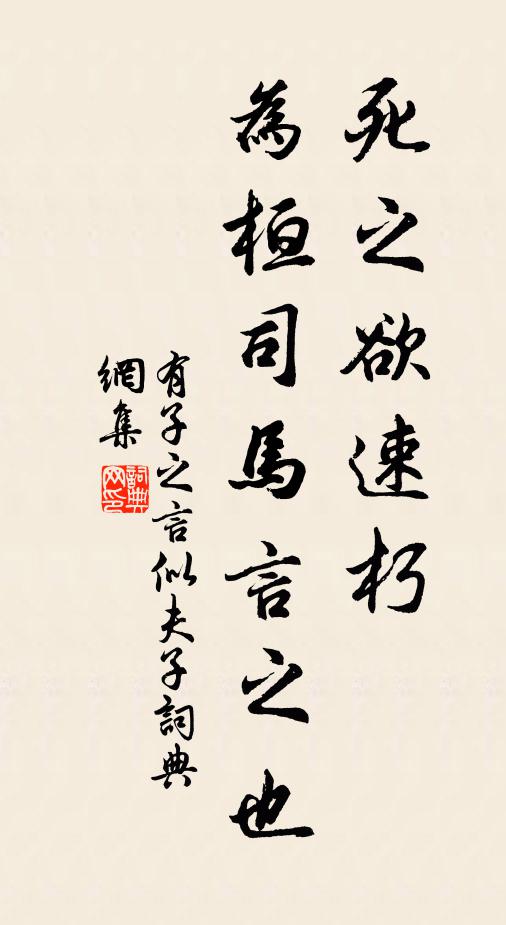 死之欲速朽
為桓司馬言之也
有子之言似夫子詞典
網集
詞典
网印